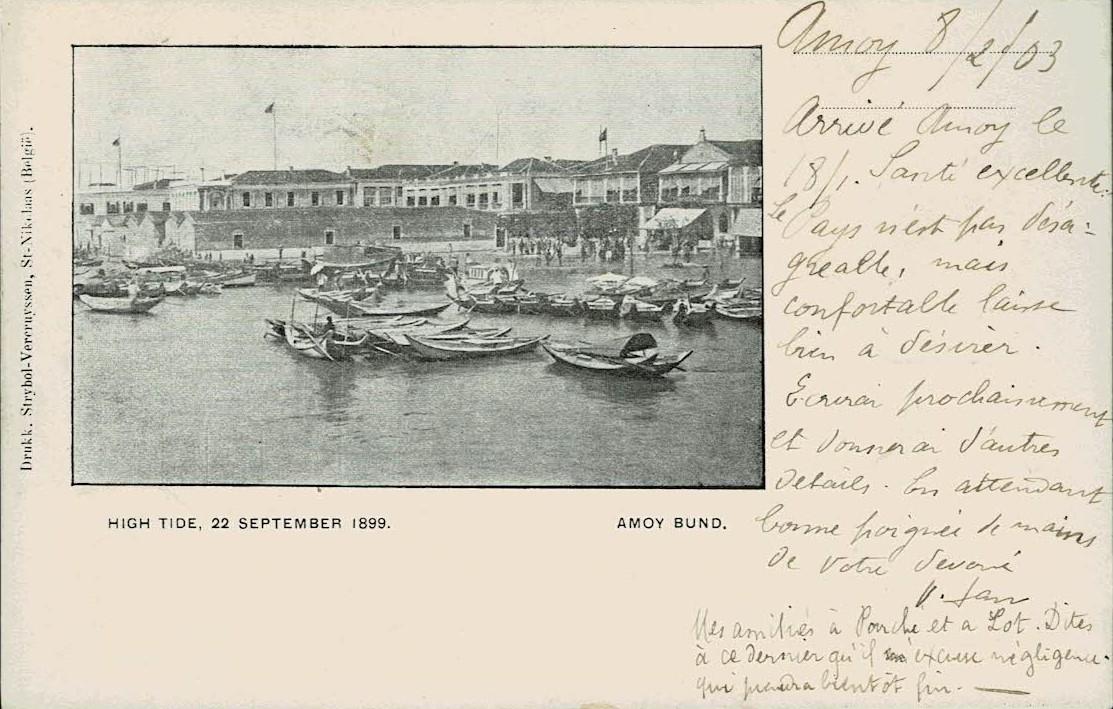 Drukk. Strybol-Vercruyssen, St-Nikolaas (België).
HIGH TIDE, 22 SEPTEMBER 1899.
AMOY BUND.
Amoy 8/2/03
Arrivé Amoy le
18/1. Santé excellente.
le Pays n'est pas désa-
gréable, mais
confortable laisse
bien à désirer.
Ecrirai prochainement
et donnerai d'autres
détails. En attendant
bonne poignée de mains
de votre dévoué
Mes amitiés à et a Lot. Dites
à ce dernier qu'il excuse négligence
qui prendra bientôt fin.